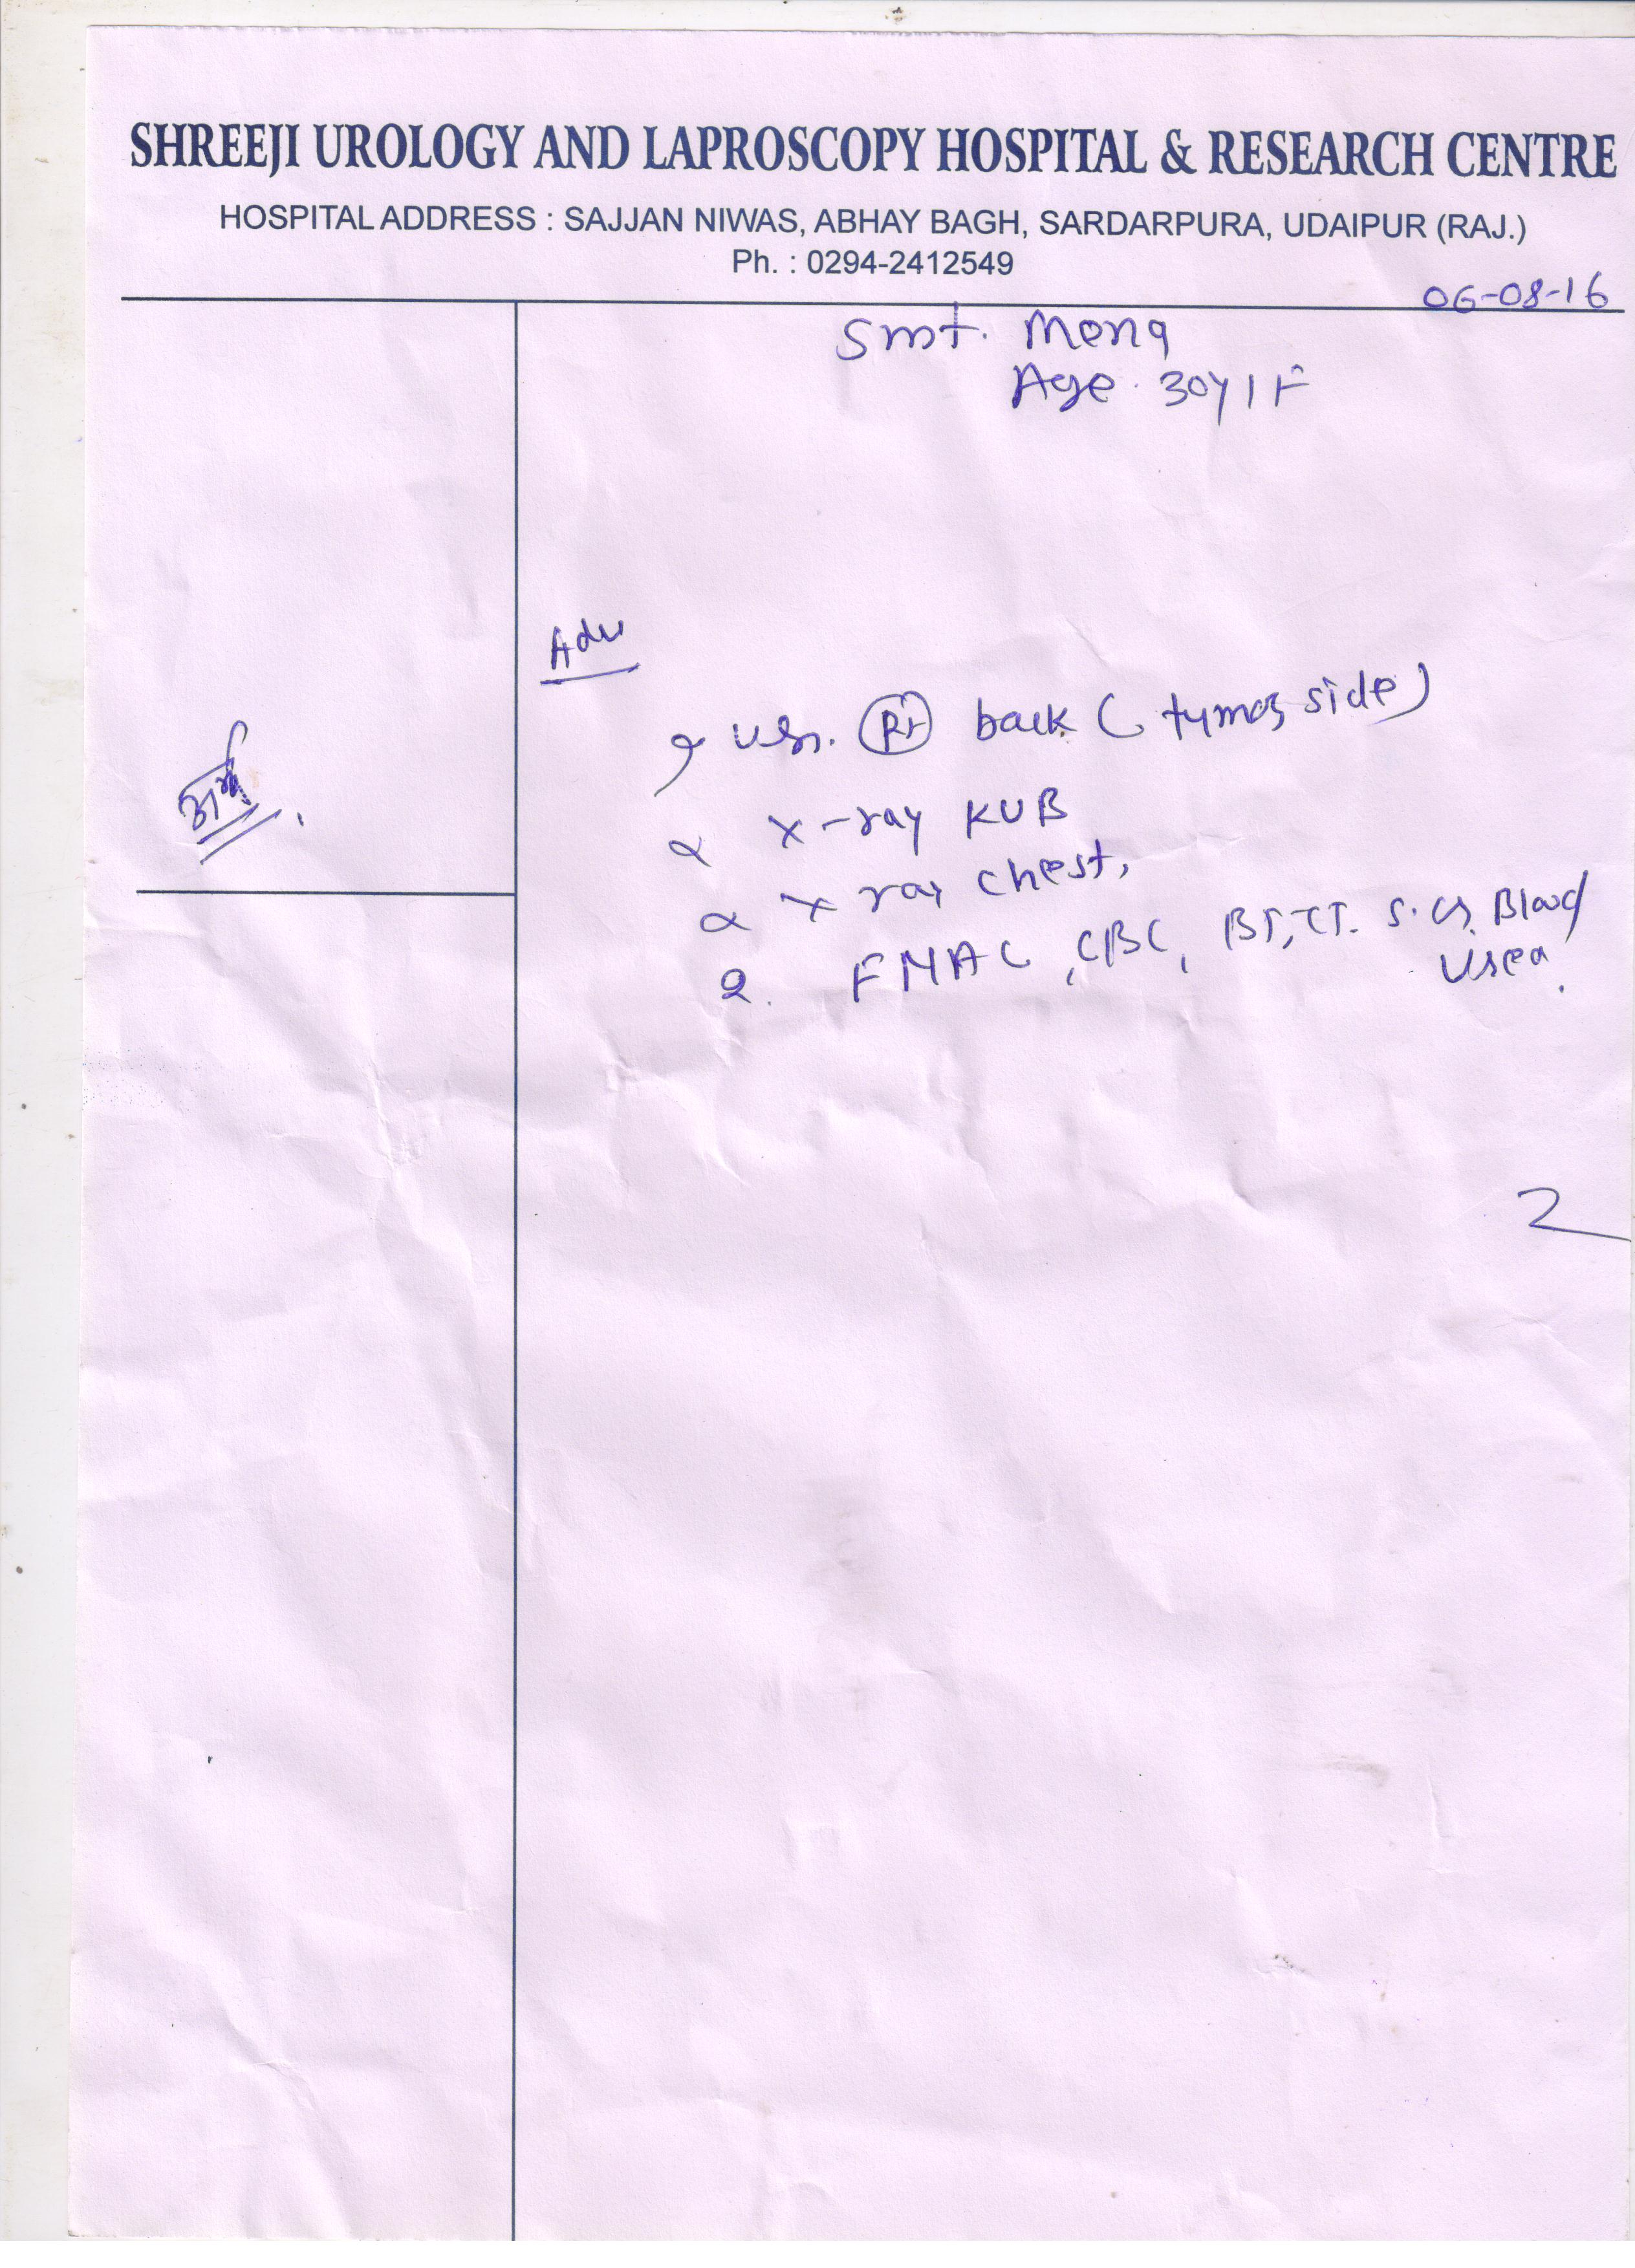 SHREEJI UROLOGY AND LAPROSCOPY HOSPITAL & RESEARCH CENTRE
HOSPITAL ADDRESS : SAJJAN NIWAS, ABHAY BAGH, SARDARPURA, UDAIPUR (RAJ.)
Ph. : 0294-2412549
06-08-16
Smt. Mena
Age. 30Y/F
Adv
Rt back ( tumor side)
X-ray KUB
X ray chest,
FNAC, CBC, BT, CT. Blood
Urea.